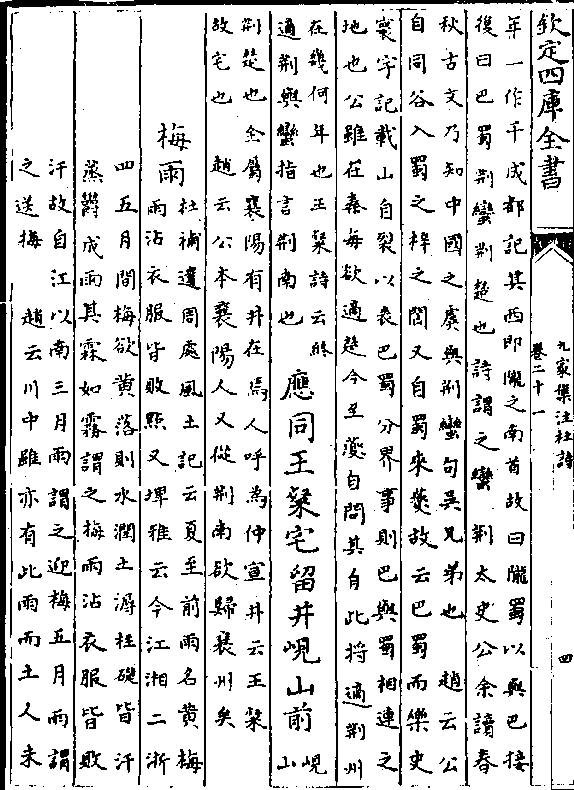 欽定四庫全書
九家集注杜詩
卷二十一
四
年一作千成都記其西即隴之南首故曰隴蜀以與巴接
後曰巴蜀荆蠻荆楚也詩謂之蠻荆太史公余讀春
秋古文乃知中國之虞與荆蠻句吳兄弟也 趙云公
自同谷入蜀之梓之閬又自蜀來夔故云巴蜀而樂史
寰宇記載山自裂以表巴蜀分界事則巴與蜀相連之
地也公雖在秦每欲適楚今至夔自問其自此將適荆州
在幾何年也王粲詩云終
適荆與蠻指言荆南也
應同王粲宅留井峴山前
峴山
荆楚也全屬襄陽有井在焉人呼為仲宣井云王粲
故宅也 趙云公本襄陽人又從荆南欲歸襄州矣
梅雨
杜補遺周處風土記云夏至前雨名黄梅
雨沾衣服皆敗黦又埤雅云今江湘二浙
四五月間梅欲黄落則水潤土溽柱礎皆汗
蒸鬱成雨其霖如霧謂之梅雨沾衣服皆敗
汗故自江以南三月雨謂之迎梅五月雨謂
之送梅 趙云川中雖亦有此雨而土人未